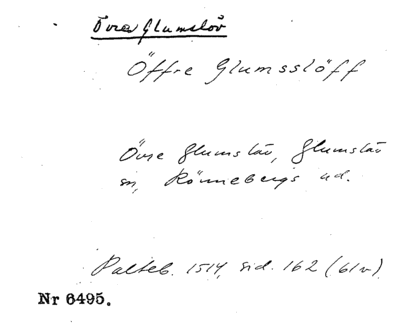 Övre Glumslöv
Öffre Glumsslöff
Övre Glumslöv, Glumslöv
sn, Rönnebergs hd.
Palteb. 1514, sid. 162 (61v)
Nr 6495.